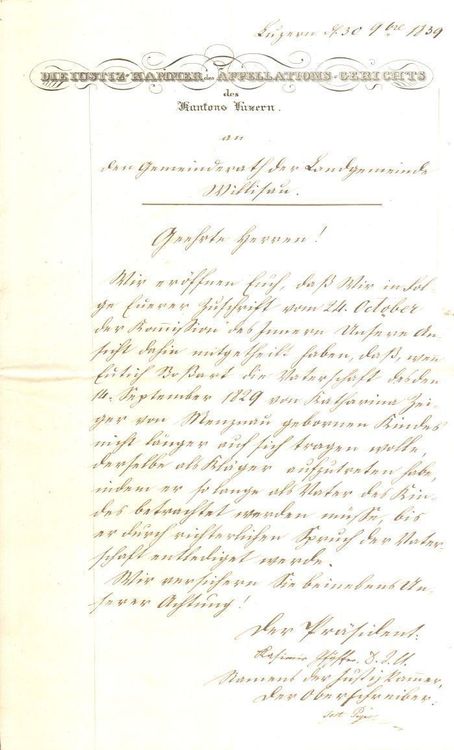 Luzern d. 30 9bre 1839
DIE IUSTIZ-KAMMER des APPELLATIONS-GERICHTS
des
Kantons Luzern.
an
den Gemeinderath der Landgemeinde
Willisau.
Geehrte Herren!
Wir eröffnen Euch, daß Wir in Fol-
ge Euerer Zuschrift vom 24. October
der Komission des Innern Unsere An-
sicht dahin mitgetheilt haben, daß, wen
Boßart die Vaterschaft des den
14. September 1829 von Katharina Zei-
ger von Menznau gebornen Kindes
nicht länger auf sich tragen wolle,
derselbe als Kläger aufzutreten habe,
indem er so lange als Vater des Kin-
des betrachtet werden müsse, bis
er durch richterlichen Spruch der Vater-
schaft entlediget werde.
Wir versichern Sie beinebens Un-
serer Achtung!
Der Präsident:
Kasimir Pfyffer
Namens der Justizkammer,
Der Oberschreiber: